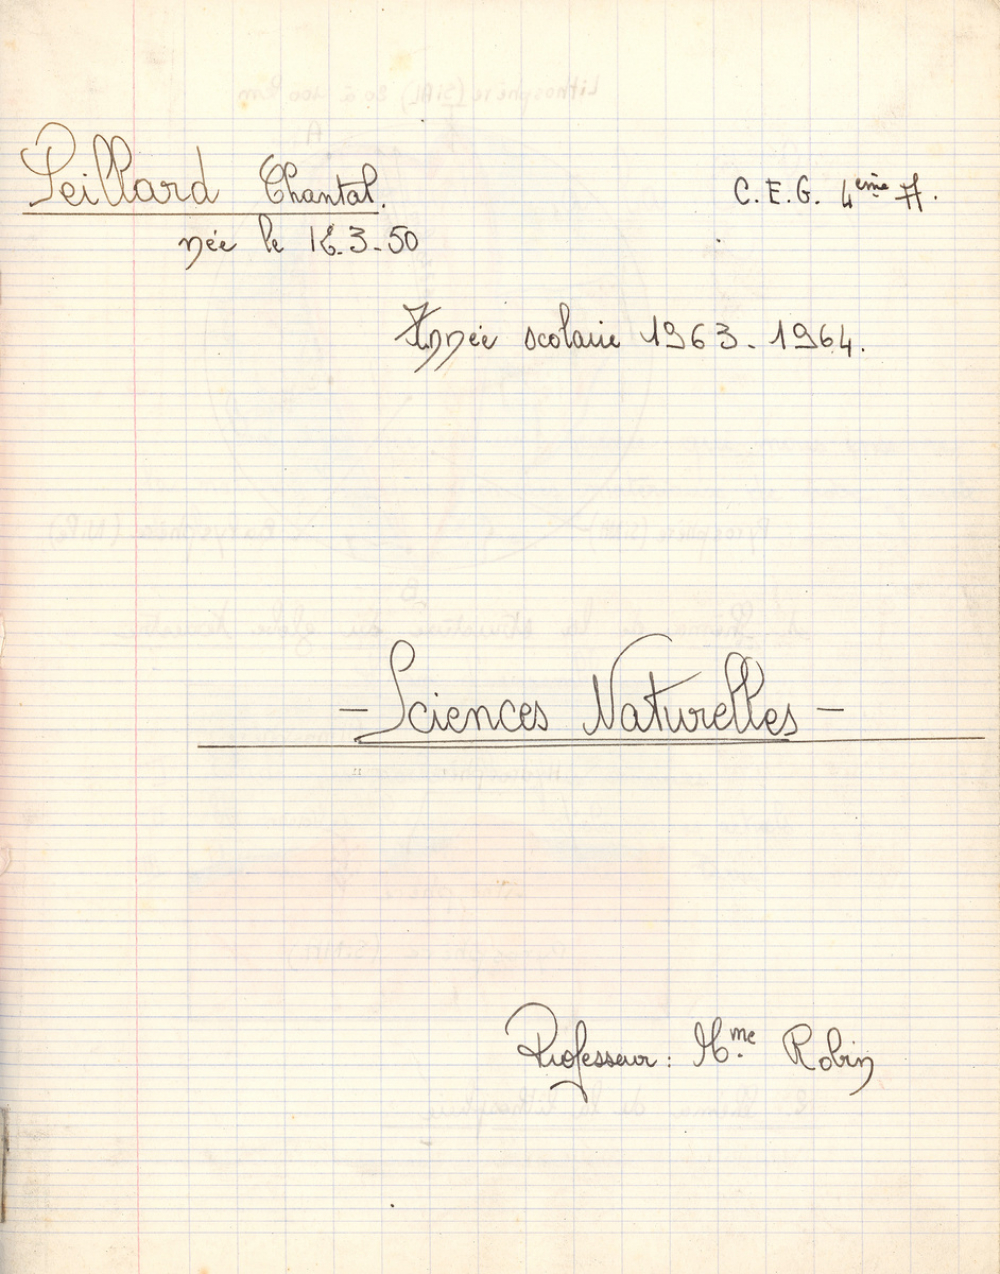 Peillard Chantal.
C.E.G. 4ème A.
née le 3-50
Année scolaire 1963-1964.
- Sciences Naturelles -
Professeur : Mme Robin